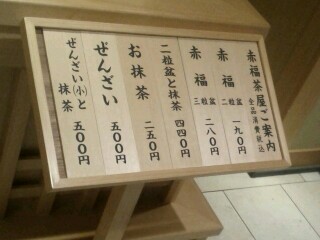 赤福茶屋ご案内
全品消費税込
赤福 二粒盆 一九〇円
赤福 三粒盆 二八〇円
二粒盆と抹茶 四四〇円
お抹茶 二五〇円
ぜんざい 五〇〇円
ぜんざい(小)と抹茶 五〇〇円